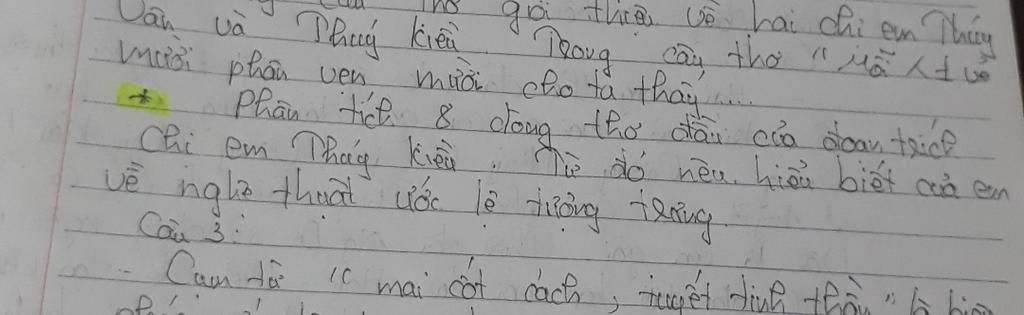 thơ giới thiệu về hai chi em Thúy
Vân và Thúy Kiều. Trong câu thơ "Mỗi
mười phân ven mười cho ta thấy....
* Phân tích 8 dòng thơ đầu của đoan trích
Chi em Thúy Kiều. Từ đó nêu hiểu biết của em
về nghê thuât ước lê tượng trưng
Câu 3:
- Cum từ " mai cốt cách, tuyết tinh thần" là